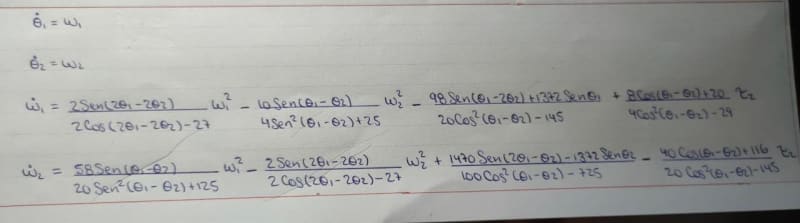 θ̇₁ = ω₁
θ̇₂ = ω₂
ω̇₁ = 2Sen(2θ₁-2θ₂) / 2Cos(2θ₁-2θ₂)-27 ω₁² - 10Sen(θ₁-θ₂) / 4Sen²(θ₁-θ₂)+25 ω₂² - 98Sen(θ₁-2θ₂)+1372Senθ₁ / 20Cos²(θ₁-θ₂)-145 + 8Cos(θ₁-θ₂)+20 / 4Cos²(θ₁-θ₂)-29 τ₂
ω̇₂ = 58Sen(θ₁-θ₂) / 20Sen²(θ₁-θ₂)+125 ω₁² - 2Sen(2θ₁-2θ₂) / 2Cos(2θ₁-2θ₂)-27 ω₂² + 1470Sen(2θ₁-θ₂)-1372Senθ₂ / 100Cos²(θ₁-θ₂)-725 - 40Cos(θ₁-θ₂)+116 / 20Cos²(θ₁-θ₂)-145 τ₂